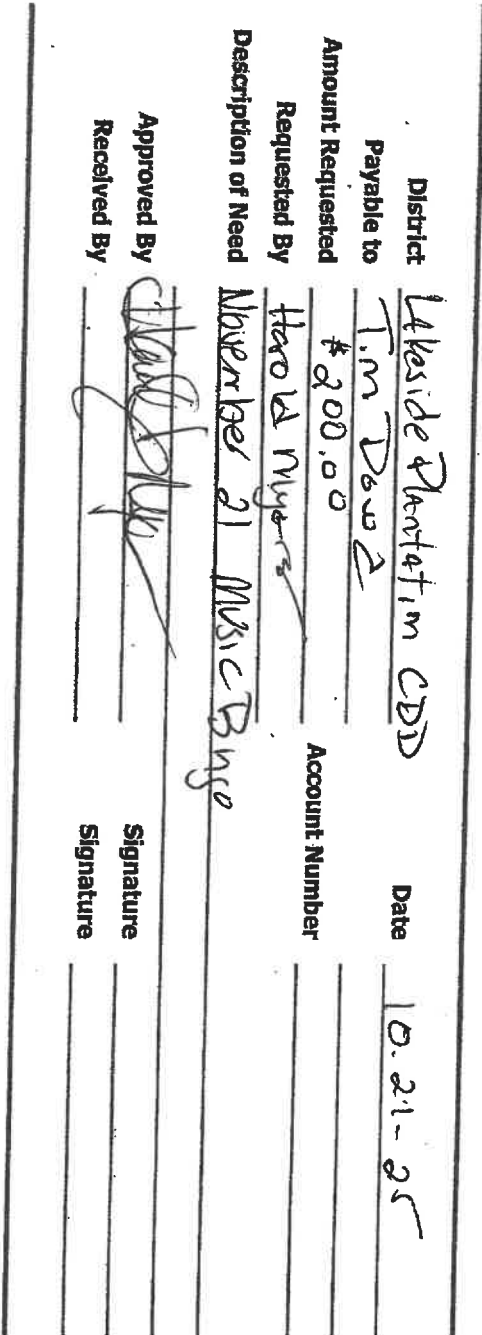 District Lakeside Plantation CDD Date 10.21-25
Payable to Tim Dowd
Amount Requested $200.00 Account Number
Requested By Harold Myers
Description of Need November 21 Music Bingo
Approved By Signature
Received By Signature